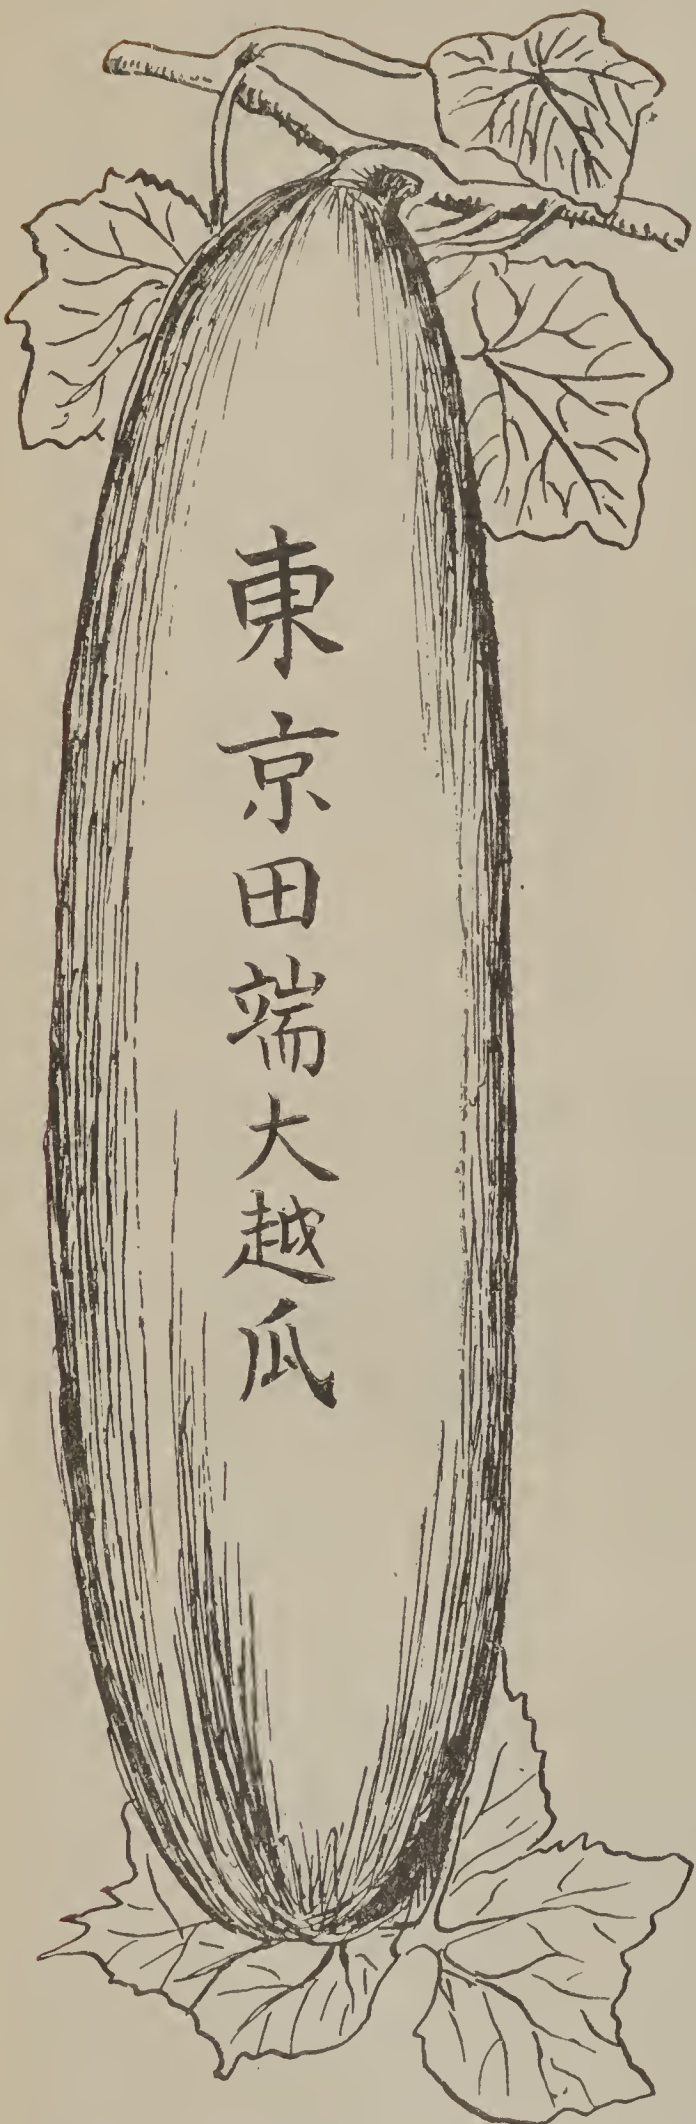 東京田端大越瓜